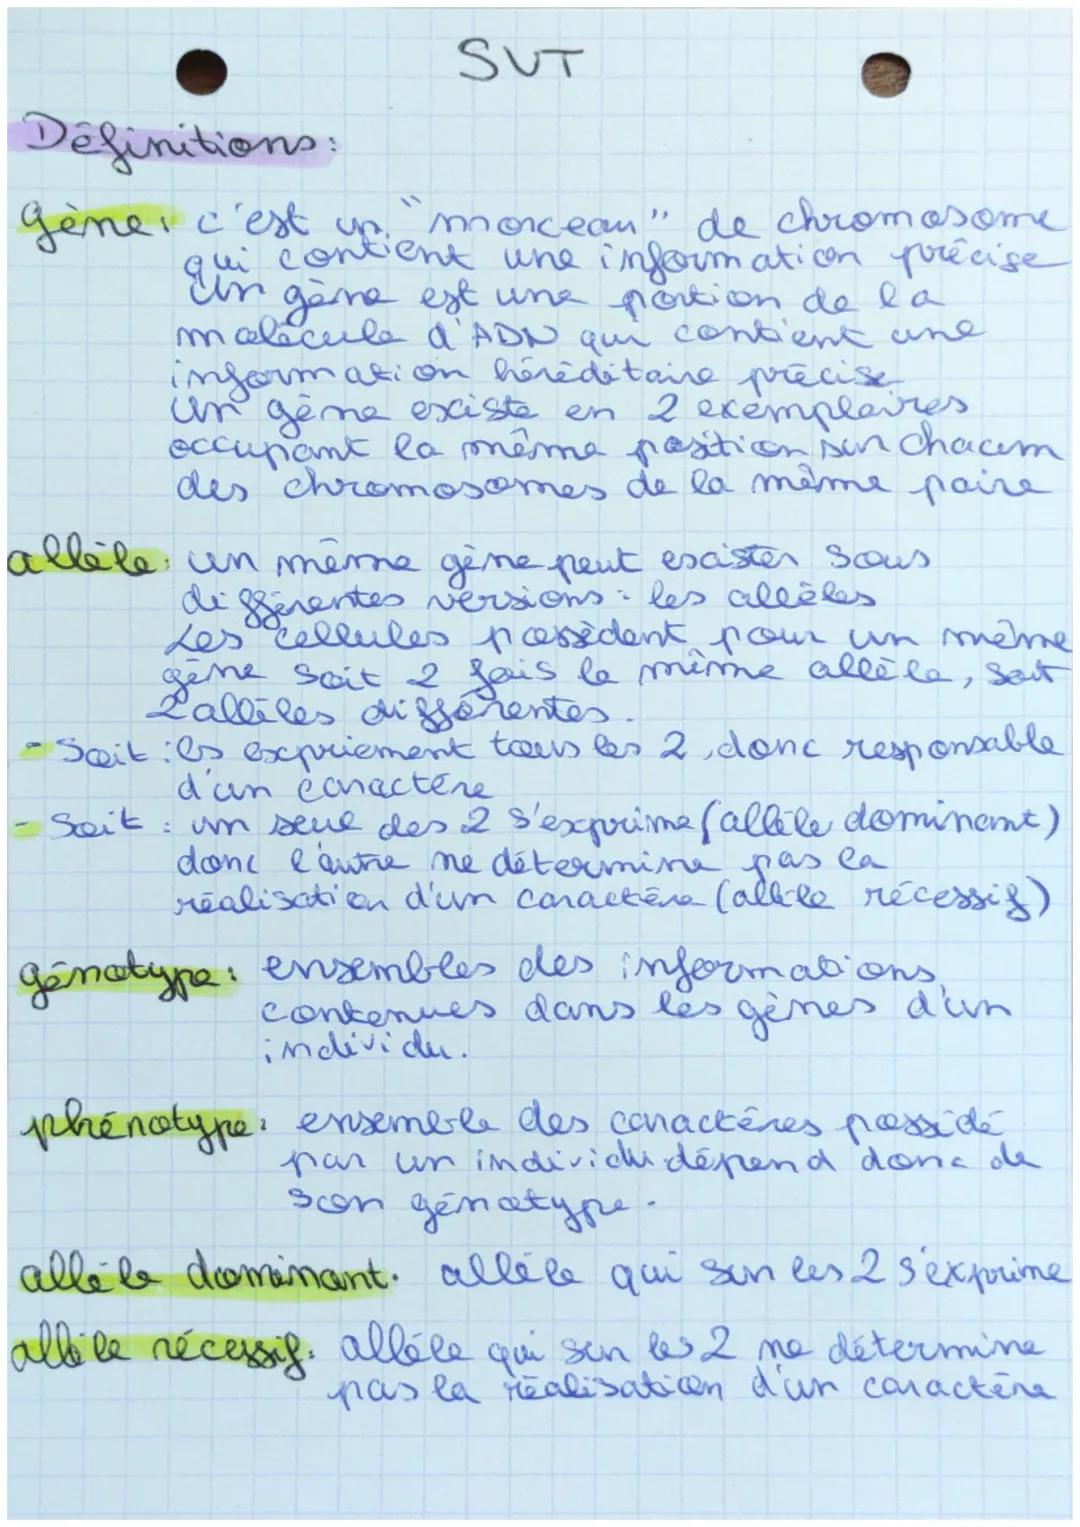 SVT
Définitions:
gène: c'est un "morceau" de chromosome
qui contient une information précise
Un gène est une portion de la
molécule d'ADN qui contient une
information héréditaire précise
Un gène existe en 2 exemplaires
occupant la même position sur chacun
des chromosomes de la même paire
allèle: un même gène peut exister sous
différentes versions : les allèles
Les cellules possèdent pour un même
gène soit 2 fois le même allèle, soit
2 allèles différentes.
- Soit : ils expriement tous les 2, donc responsable
d'un caractère
- Soit : un seul des 2 s'exprime (allèle dominant)
donc l'autre ne détermine pas la
réalisation d'un caractère (allèle récessif)
génotype: ensembles des informations
contenues dans les gènes d'un
individu.
phénotype: ensemble des caractères possédé
par un individu dépend donc de
son génotype.
allèle dominant: allèle qui sur les 2 s'exprime
allèle récessif: allèle qui sur les 2 ne détermine
pas la réalisation d'un caractère